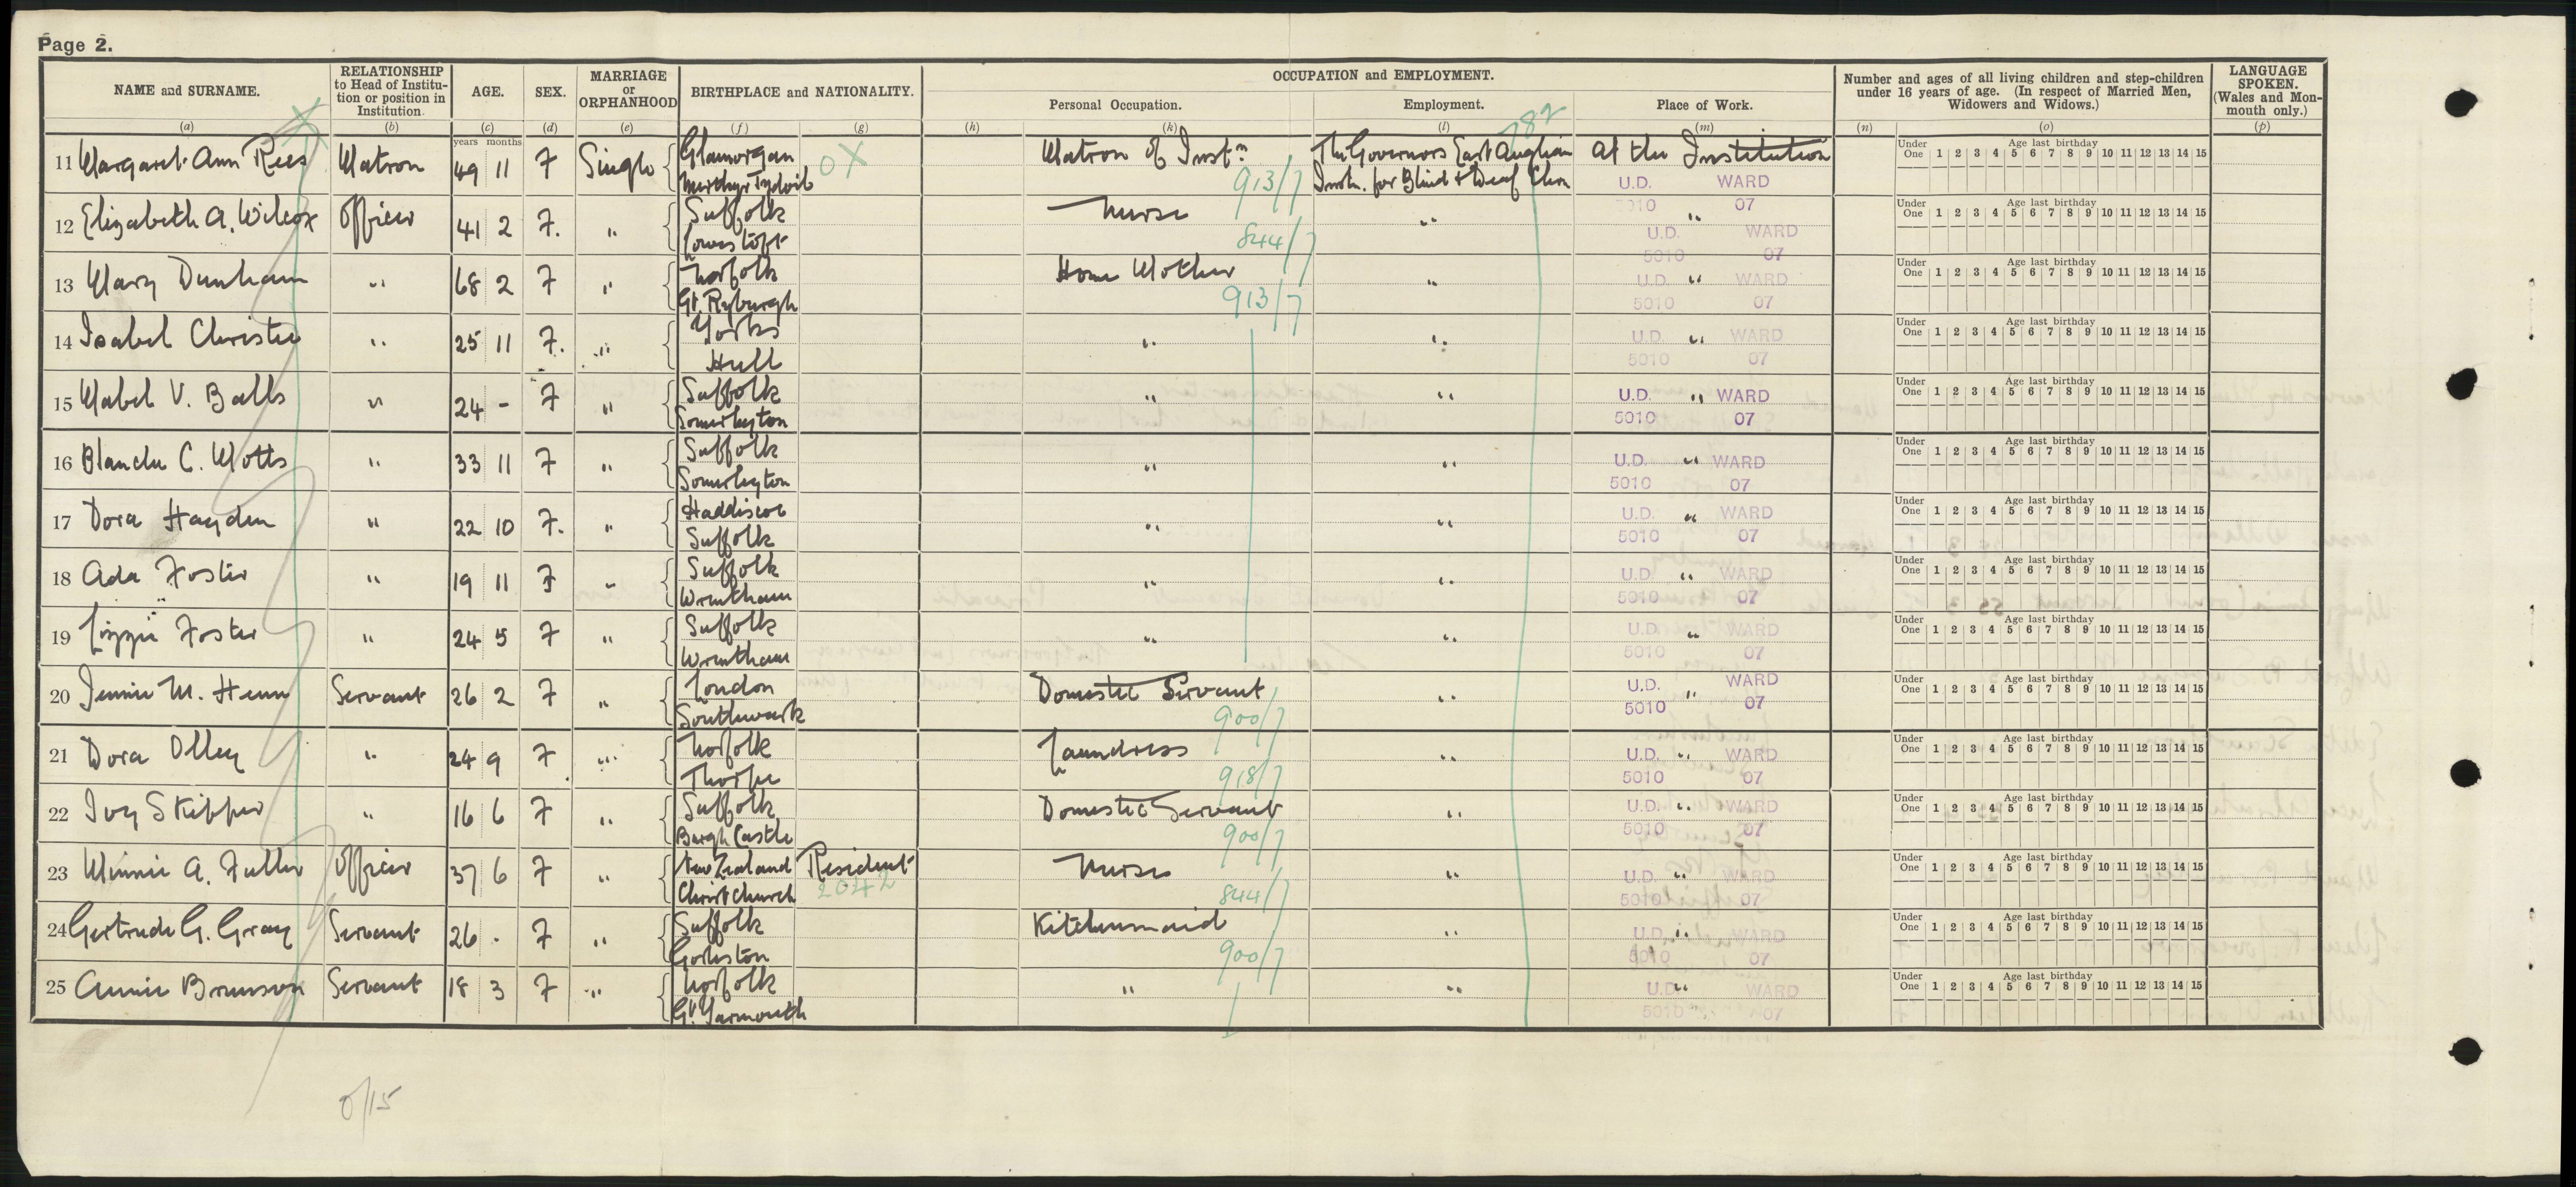 Page 2.
NAME and SURNAME. RELATIONSHIP to Head of Institu- tion or position in Institution. AGE. SEX. MARRIAGE or ORPHANHOOD BIRTHPLACE and NATIONALITY. OCCUPATION and EMPLOYMENT. Number and ages of all living children and step-children under 16 years of age. (In respect of Married Men, Widowers and Widows.) LANGUAGE SPOKEN. (Wales and Mon- mouth only.)
Personal Occupation. Employment. Place of Work.
(a) (b) (c) (d) (e) (f) (g) (h) (k) (l) (m) (n) (o) (p)
years months
782
11 Margaret Ann Rees Matron 49 11 F Single Glamorgan OX Matron of Instn The Governors East Anglian At the Institution Under One Age last birthday 1 2 3 4 5 6 7 8 9 10 11 12 13 14 15
Merthyr Tydvil 913/7 Instn. for Blind & Deaf Chn U.D. WARD
5010 07
12 Elizabeth A. Wilcox Officer 41 2 F. " Suffolk Nurse " " Under One Age last birthday 1 2 3 4 5 6 7 8 9 10 11 12 13 14 15
Lowestoft 844/7 U.D. WARD
5010 07
13 Mary Dunham " 68 2 F " Norfolk Home Mother " " Under One Age last birthday 1 2 3 4 5 6 7 8 9 10 11 12 13 14 15
Gt. Ryburgh 913/7 U.D. WARD
5010 07
14 Isabel Christie " 25 11 F. " Yorks " " " Under One Age last birthday 1 2 3 4 5 6 7 8 9 10 11 12 13 14 15
Hull U.D. WARD
5010 07
15 Mabel V. Balls " 24 - F " Suffolk " " " Under One Age last birthday 1 2 3 4 5 6 7 8 9 10 11 12 13 14 15
Somerleyton U.D. WARD
5010 07
16 Blanche C. Motts " 33 11 F " Suffolk " " " Under One Age last birthday 1 2 3 4 5 6 7 8 9 10 11 12 13 14 15
Somerleyton U.D. WARD
5010 07
17 Dora Hayden " 22 10 F. " Haddiscoe " " " Under One Age last birthday 1 2 3 4 5 6 7 8 9 10 11 12 13 14 15
Suffolk U.D. WARD
5010 07
18 Ada Foster " 19 11 F " Suffolk " " " Under One Age last birthday 1 2 3 4 5 6 7 8 9 10 11 12 13 14 15
Wrentham U.D. WARD
5010 07
19 Lizzie Foster " 24 5 F " Suffolk " " " Under One Age last birthday 1 2 3 4 5 6 7 8 9 10 11 12 13 14 15
Wrentham U.D. WARD
5010 07
20 Jennie M. Henn Servant 26 2 F " London Domestic Servant " " Under One Age last birthday 1 2 3 4 5 6 7 8 9 10 11 12 13 14 15
Southwark 900/7 U.D. WARD
5010 07
21 Dora Olley " 24 9 F " Norfolk Laundress " " Under One Age last birthday 1 2 3 4 5 6 7 8 9 10 11 12 13 14 15
Thorpe 918/7 U.D. WARD
5010 07
22 Ivy Skipper " 16 6 F " Suffolk Domestic Servant " " Under One Age last birthday 1 2 3 4 5 6 7 8 9 10 11 12 13 14 15
Burgh Castle 900/7 U.D. WARD
5010 07
23 Minnie A. Fuller Officer 37 6 F " New Zealand Resident Nurse " " Under One Age last birthday 1 2 3 4 5 6 7 8 9 10 11 12 13 14 15
Christchurch 2042 844/7 U.D. WARD
5010 07
24 Gertrude G. Gray Servant 26 - F " Suffolk Kitchenmaid " " Under One Age last birthday 1 2 3 4 5 6 7 8 9 10 11 12 13 14 15
Gorleston 900/7 U.D. WARD
5010 07
25 Annie Brunson Servant 18 3 F " Norfolk " " " Under One Age last birthday 1 2 3 4 5 6 7 8 9 10 11 12 13 14 15
Gt. Yarmouth U.D. WARD
5010 07
0/15